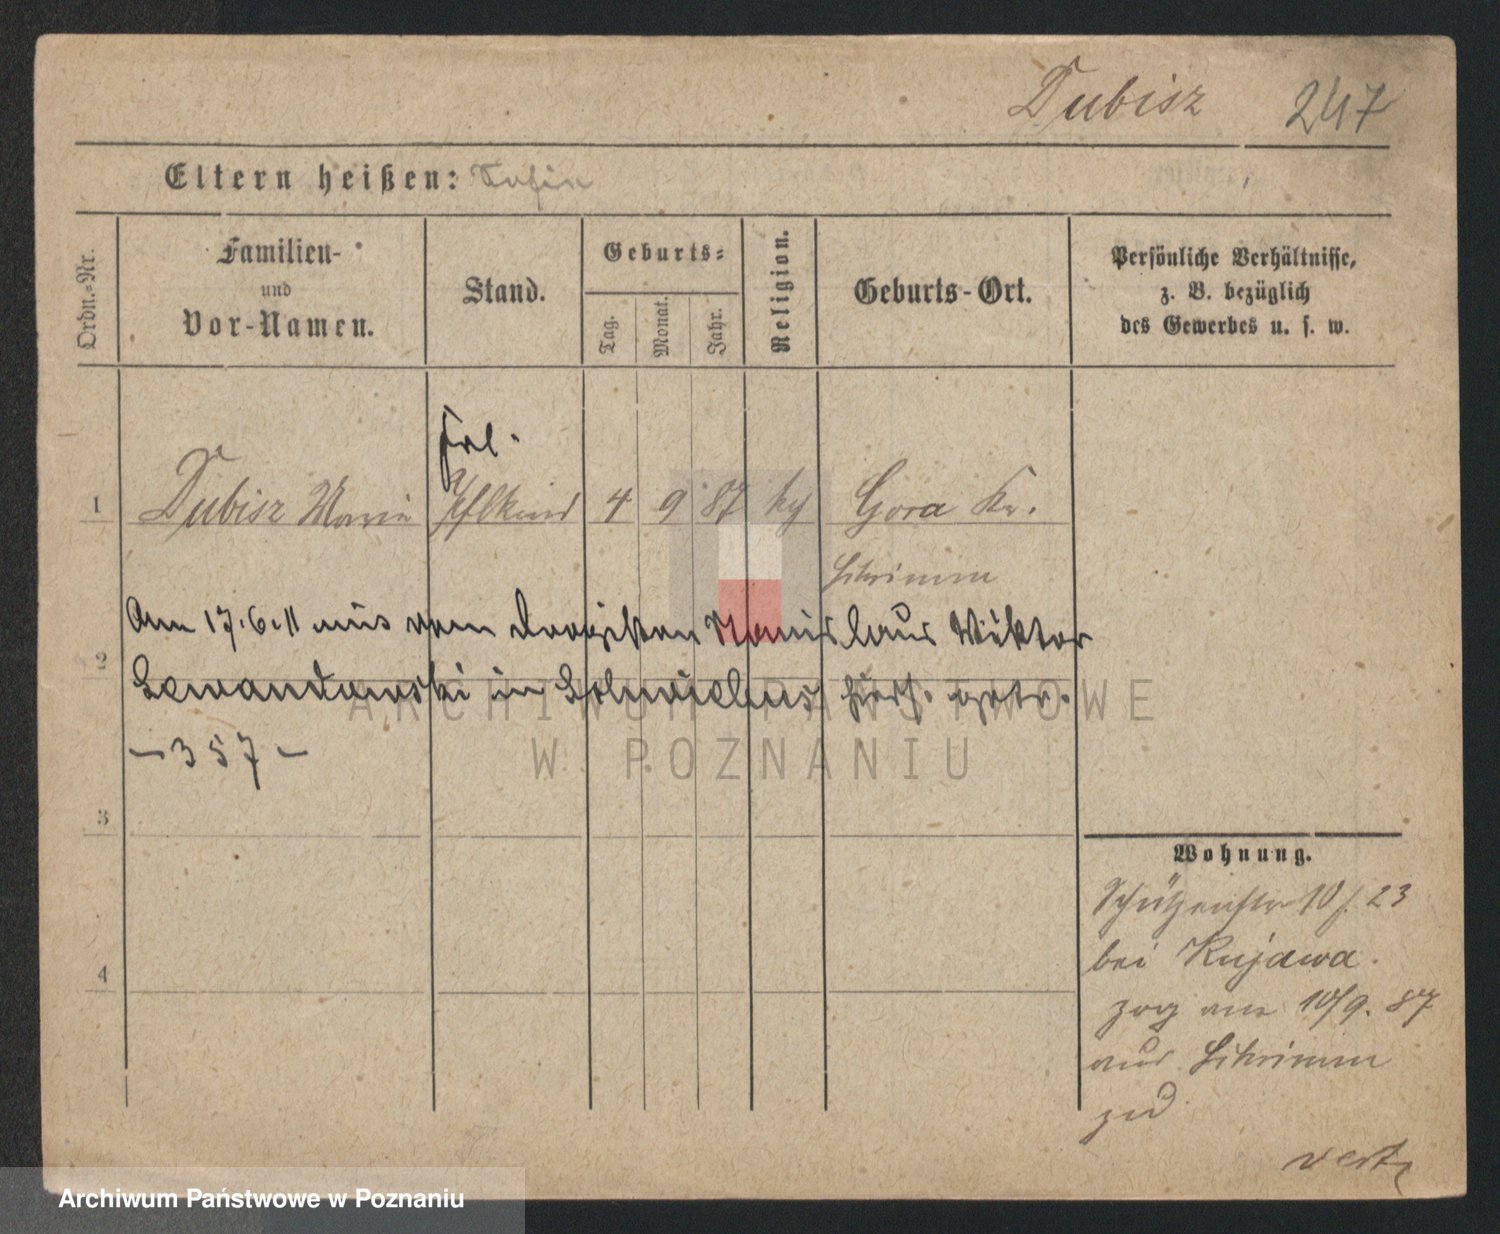 Dubisz 247
Eltern heißen: Sofia
Ordn.-Nr.
Familien-
und
Vor-Namen.
Stand.
Geburts-
Tag.
Monat.
Jahr.
Religion.
Geburts-Ort.
Persönliche Verhältnisse,
z. B. bezüglich
des Gewerbes u. s. w.
Frl.
1 Dubisz Marie Pflkind 4 9 87 Gora Kr.
Schrimm
Am 17.6.11 mit dem Drogisten Stanislaus Wiktor
2
Lewandowski in Schwiebus hjers. getr.
- 357 -
3
4
Wohnung.
Schützenstr 10 f. 23
bei Kujawa.
zog am 10/9. 87
aus Schrimm
zu
verte
ARCHIWUM PAŃSTWOWE
W POZNANIU
Archiwum Państwowe w Poznaniu